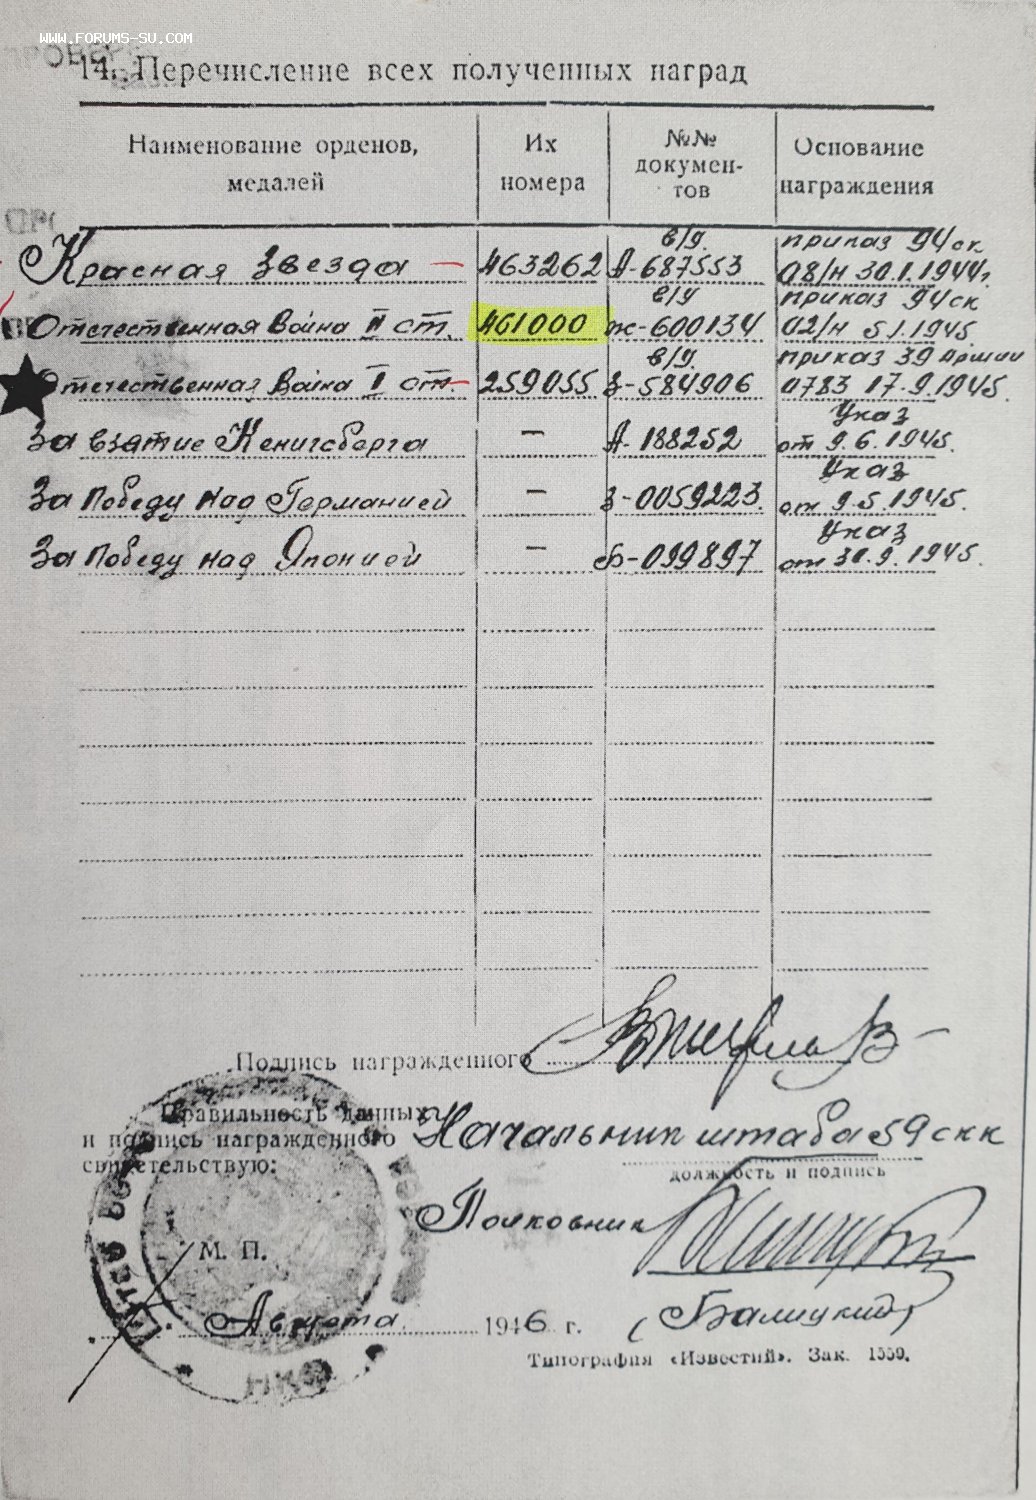 WWW.FORUMS-SU.COM
14. Перечисление всех полученных наград
Наименование орденов, медалей
Их номера
№№ докумен-тов
Основание награждения
Красная Звезда — 463262 в/у. А-687553 приказ 94 ск 08/н 30.1.1944г.
Отечественная Война II ст. 461000 в/у ж-600134 приказ 94 ск 02/н 5.1.1945.
Отечественная Война I ст. — 259055 в/у. З-584906 приказ 39 Армии 0783 17.9.1945.
За взятие Кенигсберга — А 188252 Указ от 9.6.1945.
За Победу над Германией — З-0059223. Указ от 9.5.1945.
За Победу над Японией — Б-099897 Указ от 30.9.1945.
Подпись награжденного
Правильность данных
и подпись награжденного Начальник штаба 59 скк
свидетельствую:
должность и подпись
Полковник
М. П.
Августа 1946 г. (Балицкий)
Типография «Известий». Зак. 1559.